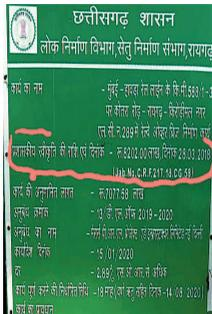 छत्तीसगढ़ शासन
लोक निर्माण विभाग, सेतु निर्माण संभाग, रायगढ़
कार्य का नाम - मुंबई - हावड़ा रेल लाईन के कि.मी. 589/1-3
पर कोतरा रोड - रायगढ़ - किरोड़ीमल नगर
एल.सी.नं. 289 में रेल्वे ओव्हर ब्रिज निर्माण कार्य
प्रशासकीय स्वीकृति की राशि एवं दिनांक - रू. 8202.00 लाख, दिनांक 28.03.2018
(Job No. C.R.F. 217.18.CG 58)
कार्य की अनुमानित लागत - रू. 7077.58 लाख
अनुबंध क्रमांक - 13 डी.एल. ऑफ 2019-2020
अनुबंध का नाम
कार्यादेश दिनांक - 15/01/2020
दर - 2.89% एस.ओ.आर. से अधिक
कार्य पूर्ण करने की निर्धारित तिथि - 18 माह (वर्षा ऋतु सहित) दिनांक - 14.08.2020